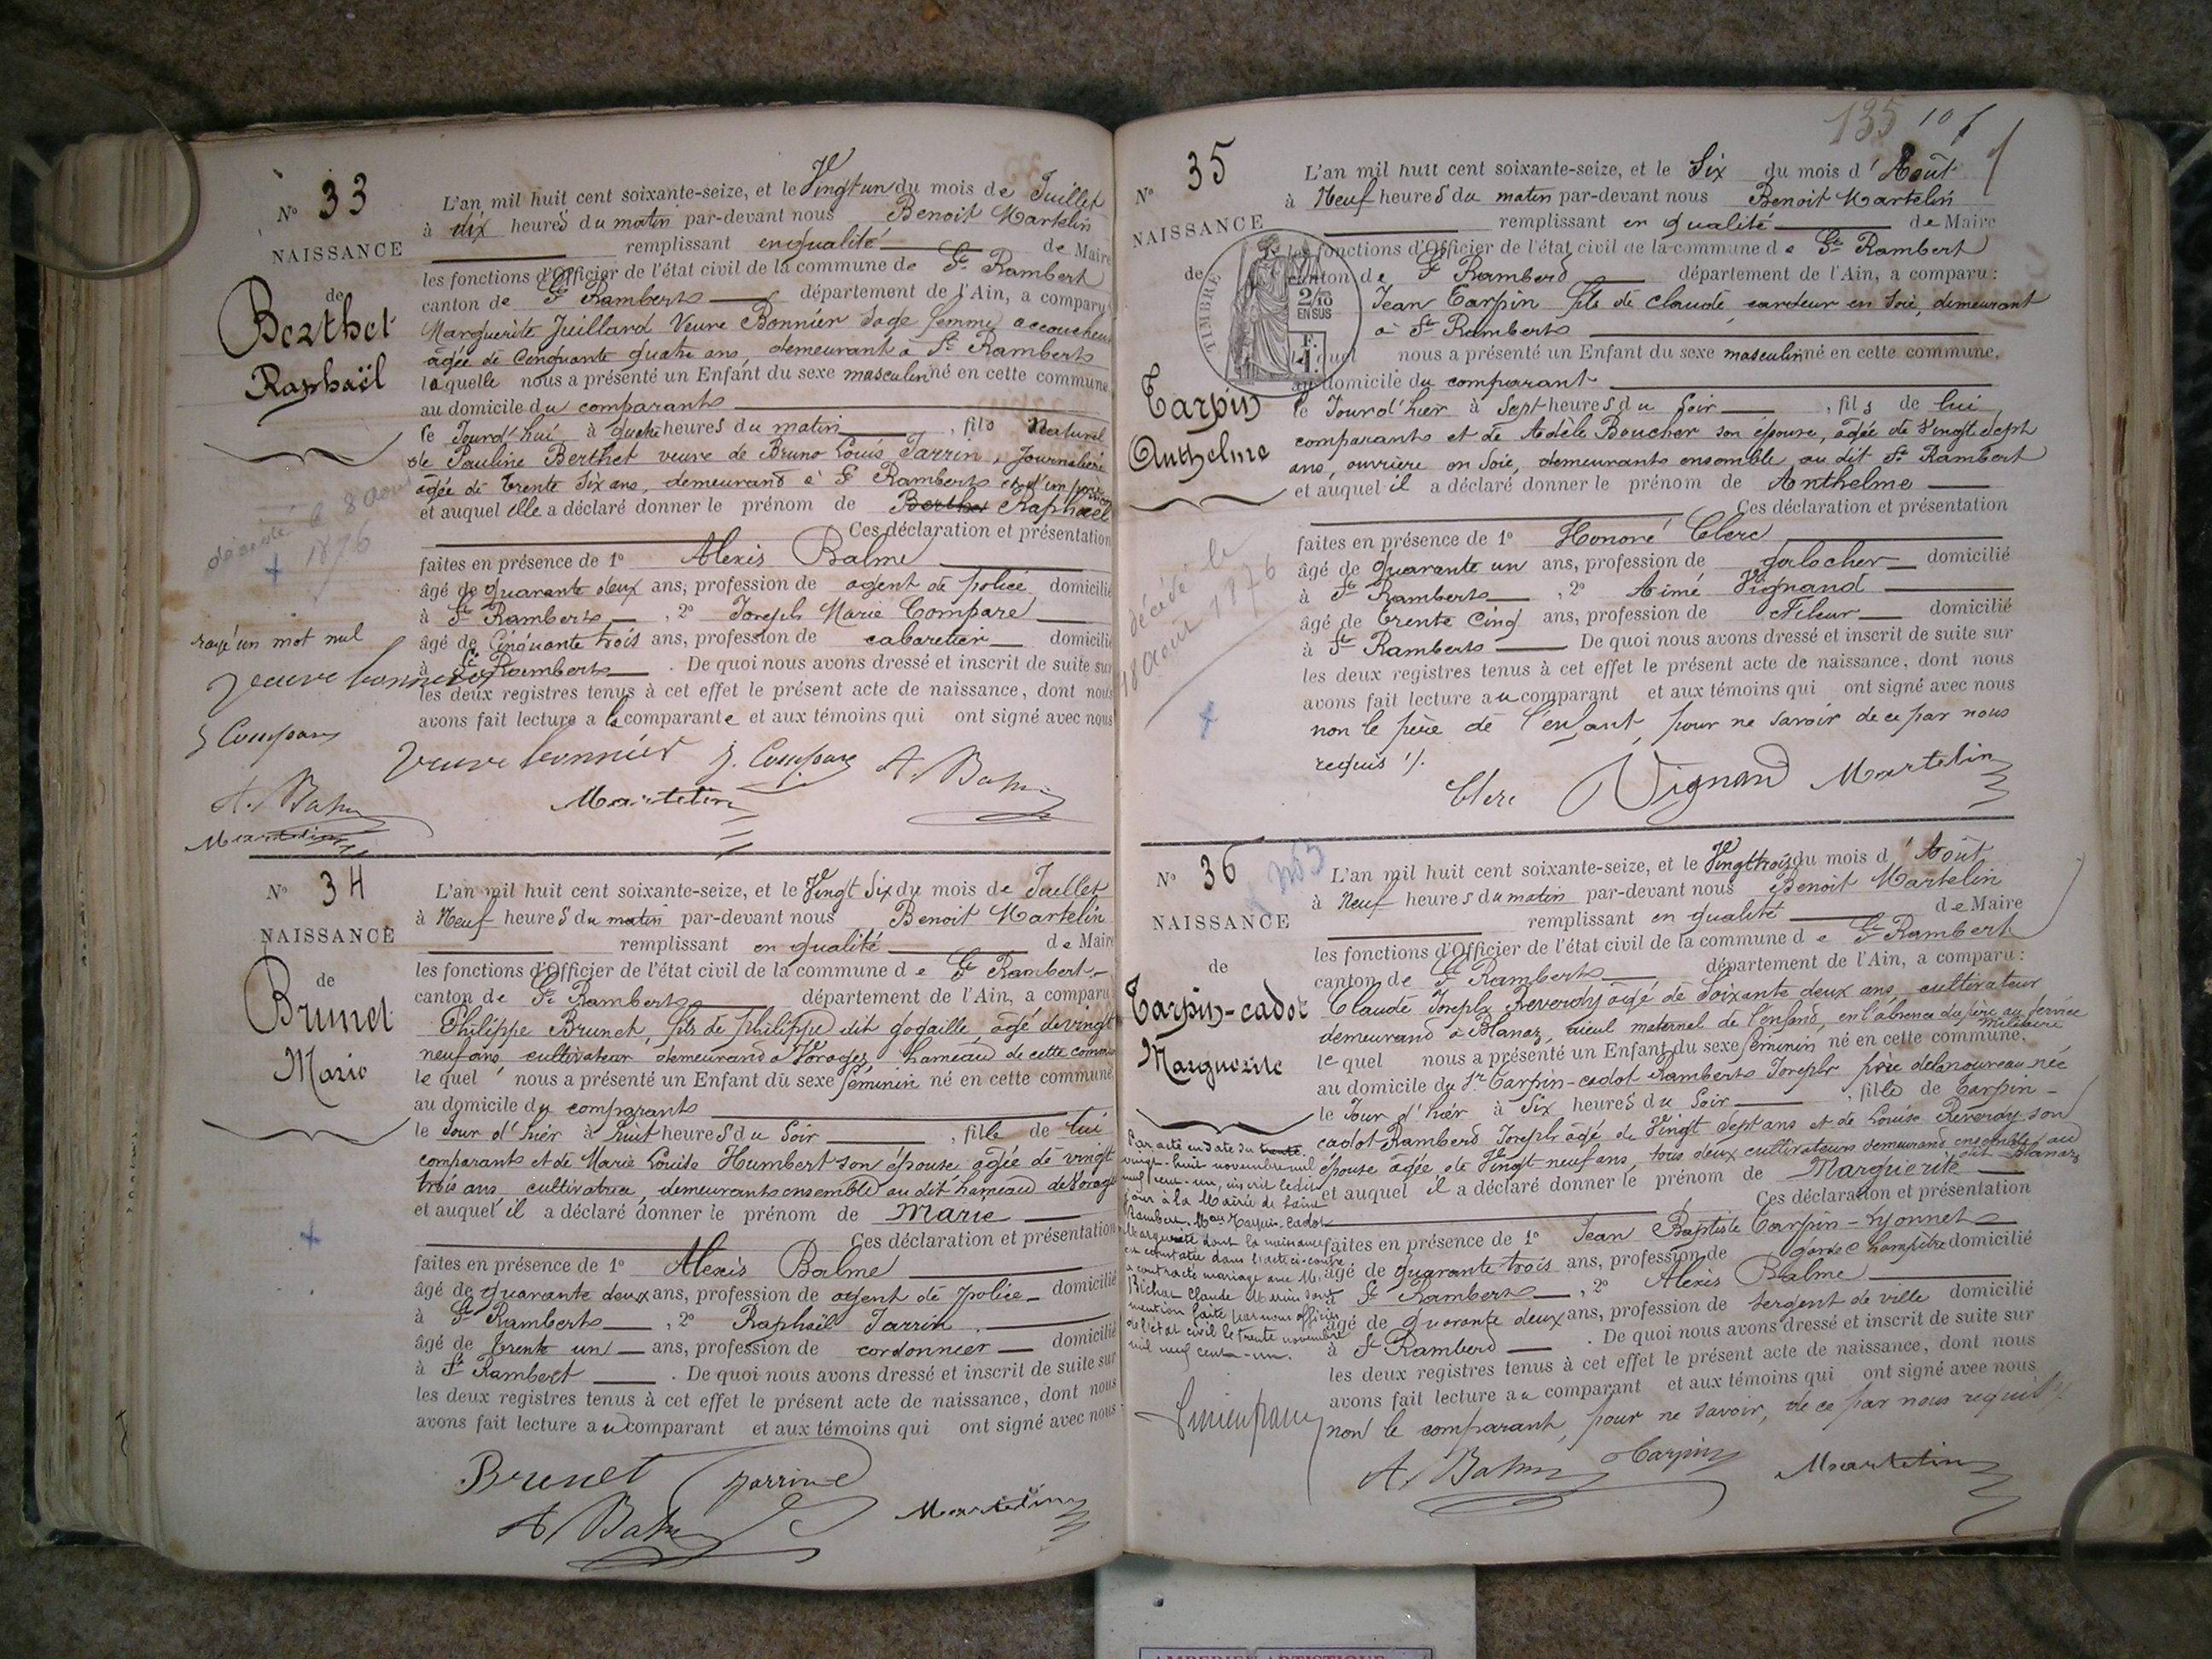 N° 33
NAISSANCE
de
Berthet
Raphaël
décédé le 8 aout
1876
rayé un mot nul
veuve bonnier
J Compare
A. Balme
Martelin
L'an mil huit cent soixante-seize, et le Vingt un du mois de Juillet
à dix heures du matin par-devant nous Benoit Martelin
remplissant en qualité de Maire
les fonctions d'Officier de l'état civil de la commune de St Rambert
canton de St Rambert département de l'Ain, a comparu
Marguerite Juillard Veuve Bonnier Sage femme accoucheuse
âgée de Cinquante quatre ans, demeurant à St Rambert
laquelle nous a présenté un Enfant du sexe masculin né en cette commune
au domicile du comparant
le Jourd'hui à quatre heures du matin, fils Naturel
de Pauline Berthet veuve de Bruno Louis Jarrin, Journalière
âgée de trente Six ans, demeurant à St Rambert et d'un père
et auquel elle a déclaré donner le prénom de Berthet Raphaël
Ces déclaration et présentation
faites en présence de 1° Alexis Balme
âgé de quarante deux ans, profession de agent de police domicilié
à St Rambert, 2° Joseph Marie Compare
âgé de Cinquante trois ans, profession de cabaretier domicilié
à St Rambert. De quoi nous avons dressé et inscrit de suite sur
les deux registres tenus à cet effet le présent acte de naissance, dont nous
avons fait lecture a la comparante et aux témoins qui ont signé avec nous
Veuve bonnier J. Compare A. Balme
Martelin
N° 34
NAISSANCE
de
Brunet
Marie
L'an mil huit cent soixante-seize, et le Vingt Six du mois de Juillet
à Neuf heures du matin par-devant nous Benoit Martelin
remplissant en qualité de Maire
les fonctions d'Officier de l'état civil de la commune de St Rambert
canton de St Rambert département de l'Ain, a comparu
Philippe Brunet, fils de philippe dit gogaille, âgé de vingt
neuf ans cultivateur demeurant à Vorages hameau de cette commune
lequel nous a présenté un Enfant du sexe féminin né en cette commune
au domicile du comparant
le Jour d'hier à huit heures du Soir, fille de lui
comparant et de Marie Louise Humbert son épouse âgée de vingt
trois ans, cultivatrice, demeurants ensemble au dit hameau de Vorages
et auquel il a déclaré donner le prénom de Marie
Ces déclaration et présentation
faites en présence de 1° Alexis Balme
âgé de quarante deux ans, profession de agent de police domicilié
à St Rambert, 2° Raphaël Jarrin
âgé de trente un ans, profession de cordonnier domicilié
à St Rambert. De quoi nous avons dressé et inscrit de suite sur
les deux registres tenus à cet effet le présent acte de naissance, dont nous
avons fait lecture au comparant et aux témoins qui ont signé avec nous
Brunet Jarrin
A Balme Martelin
135 101
N° 35
NAISSANCE
de
TIMBRE
2/10
EN SUS
F.
1.
Tarpin
Anthelme
décédé le
18 aout 1876
L'an mil huit cent soixante-seize, et le Six du mois d'Août
à Neuf heures du matin par-devant nous Benoit Martelin
remplissant en qualité de Maire
les fonctions d'Officier de l'état civil de la commune de St Rambert
canton de St Rambert département de l'Ain, a comparu:
Jean Tarpin fils de claude, cardeur en Soie, demeurant
à St Rambert
lequel nous a présenté un Enfant du sexe masculin né en cette commune,
au domicile du comparant
le Jourd'hier à Sept heures du Soir, fils de lui
comparant et de Adèle Boucher son épouse, âgée de Vingt Sept
ans, ouvrière en Soie, demeurants ensemble au dit St Rambert
et auquel il a déclaré donner le prénom de Anthelme
Ces déclaration et présentation
faites en présence de 1° Honoré Clerc
âgé de quarante un ans, profession de galocher domicilié
à St Rambert, 2° Aimé Vignand
âgé de trente Cinq ans, profession de fileur domicilié
à St Rambert De quoi nous avons dressé et inscrit de suite sur
les deux registres tenus à cet effet le présent acte de naissance, dont nous
avons fait lecture au comparant et aux témoins qui ont signé avec nous
non le père de l'enfant, pour ne savoir de ce par nous
requis ./.
Clerc Vignand Martelin
N° 36
NAISSANCE
de
Tarpin-cadot
Marguerite
L'an mil huit cent soixante-seize, et le Vingt trois du mois d'Août
à Neuf heures du matin par-devant nous Benoit Martelin
remplissant en qualité de Maire
les fonctions d'Officier de l'état civil de la commune de St Rambert
canton de St Rambert département de l'Ain, a comparu:
Claude Joseph Reverdy âgé de Soixante deux ans, cultivateur
demeurant à Blanaz, aieul maternel de l'enfant, en l'absence du père au service
militaire
lequel nous a présenté un Enfant du sexe féminin né en cette commune,
au domicile du Sr Tarpin-cadot Rambert Joseph père de la nouveau née
le Jour d'hier à Six heures du Soir, fille de Tarpin-
cadot Rambert Joseph âgé de Vingt Sept ans et de Louise Reverdy son
épouse âgée de Vingt neuf ans, tous deux cultivateurs demeurant ensemble au
dit Blanaz
et auquel il a déclaré donner le prénom de Marguerite
Ces déclaration et présentation
faites en présence de 1° Jean Baptiste Tarpin-Lyonnet
âgé de quarante trois ans, profession de garde champêtre domicilié
à St Rambert, 2° Alexis Balme
âgé de quarante deux ans, profession de Sergent de ville domicilié
à St Rambert. De quoi nous avons dressé et inscrit de suite sur
les deux registres tenus à cet effet le présent acte de naissance, dont nous
avons fait lecture au comparant et aux témoins qui ont signé avec nous
non le comparant, pour ne savoir, de ce par nous requis
A. Balme Tarpin Martelin
Par acte en date du trente
vingt-huit novembre mil
neuf cent-un, inscrit ledit
jour à la Mairie de Saint
Rambert. Tarpin-Cadot
Marguerite dont la naissance
est constatée dans l'acte ci-contre
a contracté mariage avec M.
Claude dont
mention faite par nous officier
de l'état civil le trente novembre
mil neuf cent-un.